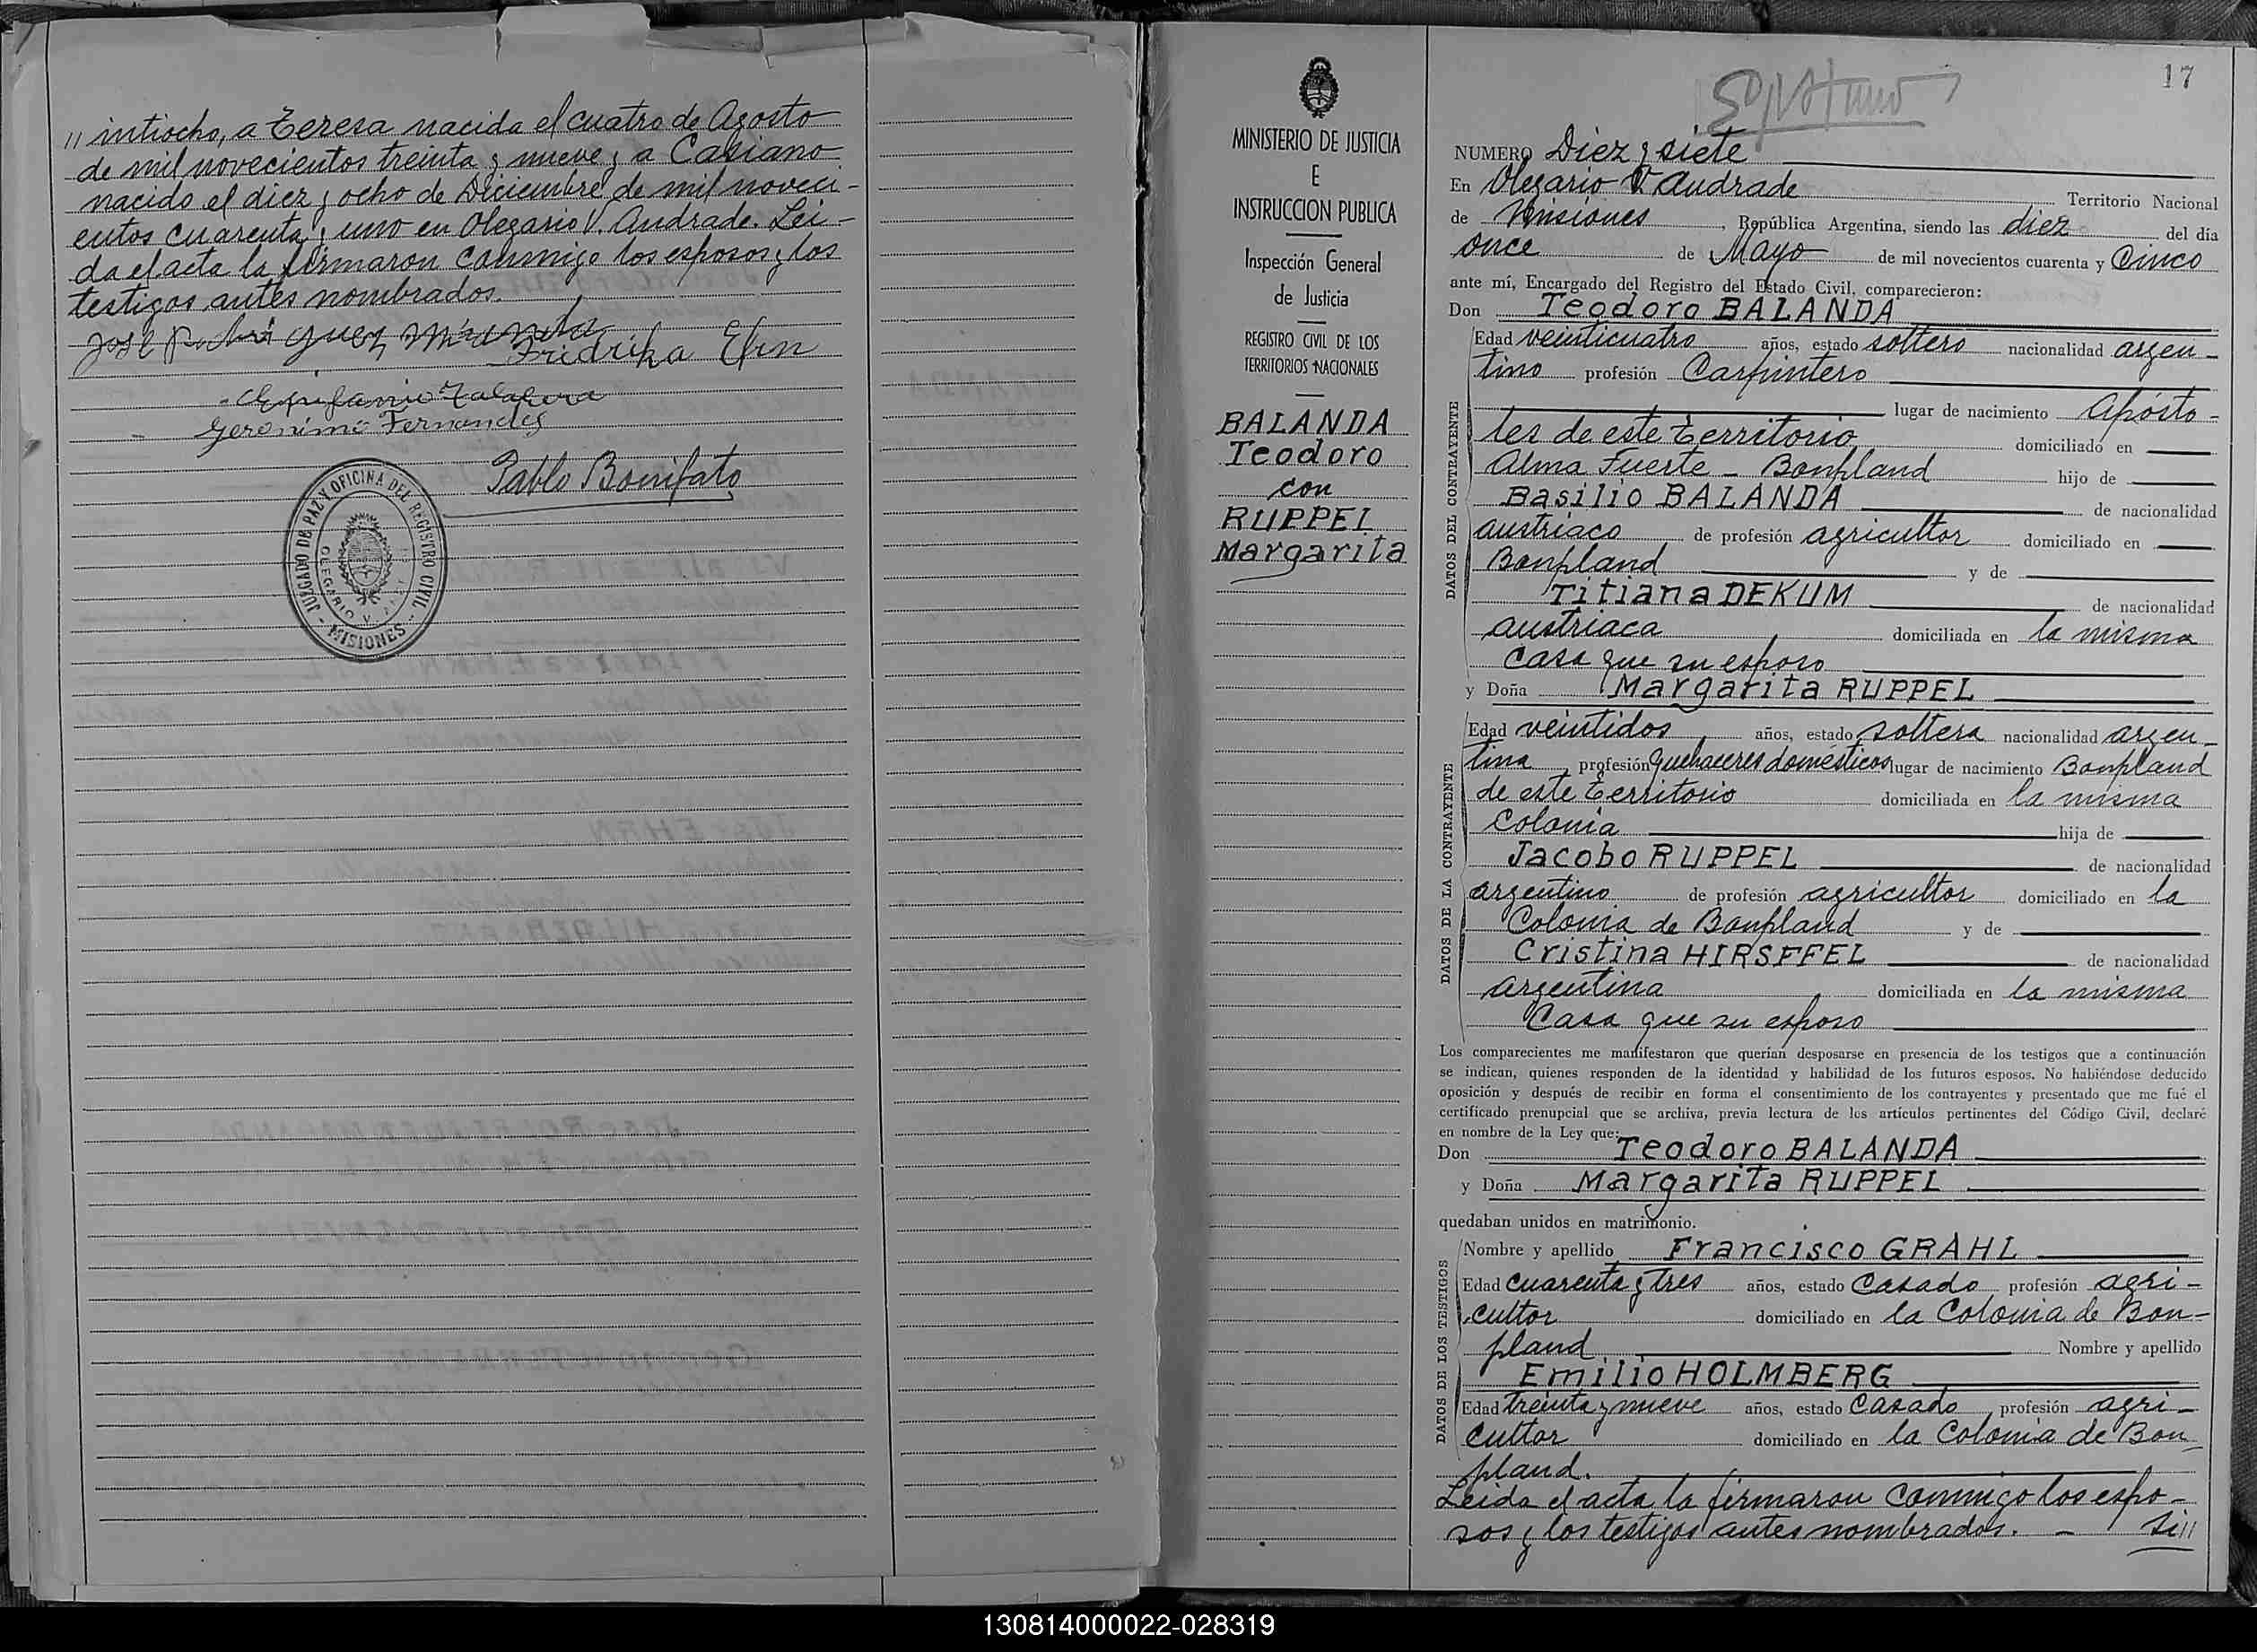 intiocho, a Teresa nacida el cuatro de Agosto
de mil novecientos treinta y nueve y a Casiano
nacido el diez y ocho de Diciembre de mil noveci-
entos cuarenta y uno en Olegario V. Andrade. Lei-
da el acta la firmaron conmigo los esposos y los
testigos antes nombrados.
José
Fridrika Ehn
Epifanio
Geronimo Fernandes
Pablo Bonifato
JUZGADO DE PAZ Y OFICINA DEL REGISTRO CIVIL
OLEGARIO V.
- MISIONES -
MINISTERIO DE JUSTICIA
E
INSTRUCCION PUBLICA
Inspección General
de Justicia
REGISTRO CIVIL DE LOS
TERRITORIOS NACIONALES
BALANDA
Teodoro
con
RUPPEL
Margarita
17
NUMERO Diez y siete
En Olegario V. Andrade Territorio Nacional
de Misiones, República Argentina, siendo las diez del día
once de Mayo de mil novecientos cuarenta y Cinco
ante mí, Encargado del Registro del Estado Civil, comparecieron:
Don Teodoro BALANDA
DATOS DEL CONTRAYENTE
Edad veinticuatro años, estado soltero nacionalidad argen-
tino profesión Carpintero
lugar de nacimiento Apósto-
les de este Territorio domiciliado en
Alma Fuerte - Bonpland hijo de
Basilio BALANDA de nacionalidad
austriaco de profesión agricultor domiciliado en
Bonpland y de
Titiana DEKUM de nacionalidad
austriaca domiciliada en la misma
casa que su esposo
y Doña Margarita RUPPEL
DATOS DE LA CONTRAYENTE
Edad veintidos años, estado soltera nacionalidad argen-
tina profesión quehaceres domésticos lugar de nacimiento Bonpland
de este Territorio domiciliada en la misma
Colonia hija de
Jacobo RUPPEL de nacionalidad
argentino de profesión agricultor domiciliado en la
Colonia de Bonpland y de
Cristina HIRSFFEL de nacionalidad
argentina domiciliada en la misma
Casa que su esposo
Los comparecientes me manifestaron que querían desposarse en presencia de los testigos que a continuación
se indican, quienes responden de la identidad y habilidad de los futuros esposos. No habiéndose deducido
oposición y después de recibir en forma el consentimiento de los contrayentes y presentado que me fué el
certificado prenupcial que se archiva, previa lectura de los artículos pertinentes del Código Civil, declaré
en nombre de la Ley que:
Don Teodoro BALANDA
y Doña Margarita RUPPEL
quedaban unidos en matrimonio.
DATOS DE LOS TESTIGOS
Nombre y apellido Francisco GRAHL
Edad cuarenta y tres años, estado Casado profesión agri-
cultor domiciliado en la Colonia de Bon-
pland Nombre y apellido
Emilio HOLMBERG
Edad treinta y nueve años, estado Casado profesión agri-
cultor domiciliado en la Colonia de Bon-
pland.
Leida el acta la firmaron conmigo los espo-
sos y los testigos antes nombrados. - Si//
130814000022-028319